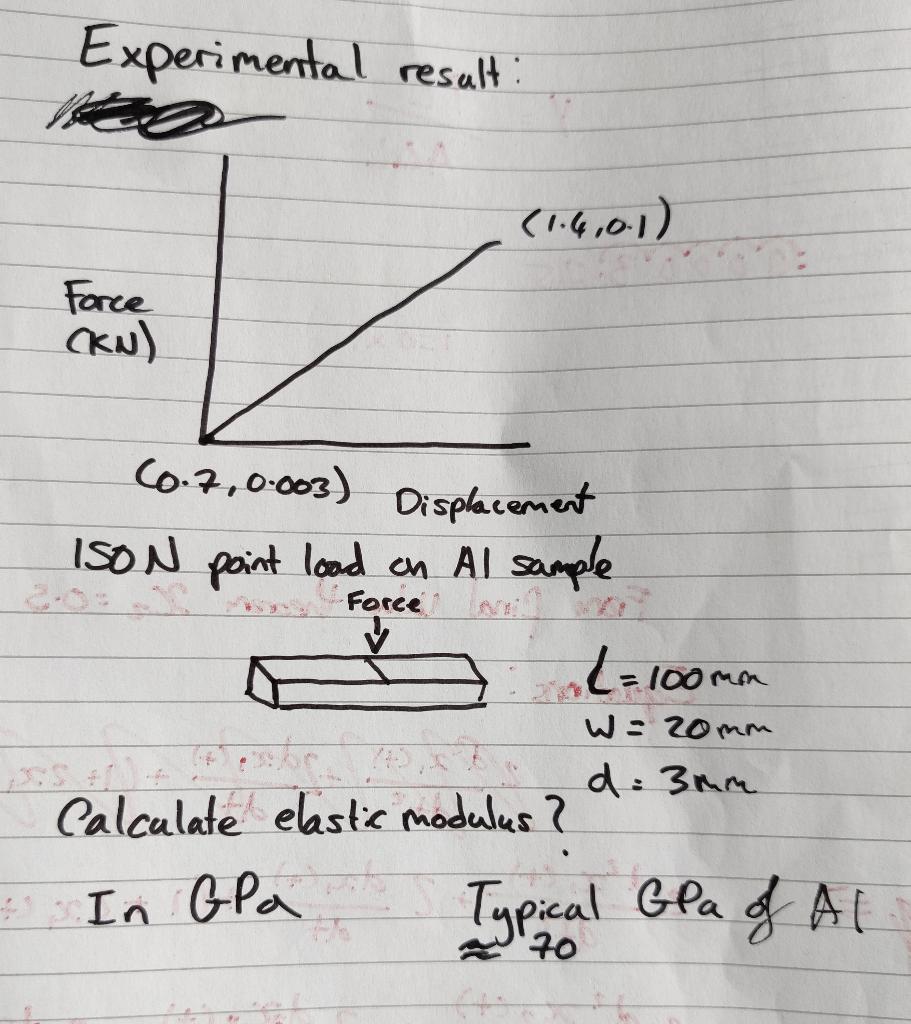 Experimental result:
(1.4,0.1)
Force
(KN)
(0.7,0.003)
Displacement
150N point load on Al sample
Force
L = 100mm
W = 20mm
d = 3mm
Calculate elastic modulus?
In GPa
Typical GPa of Al
≈ 70